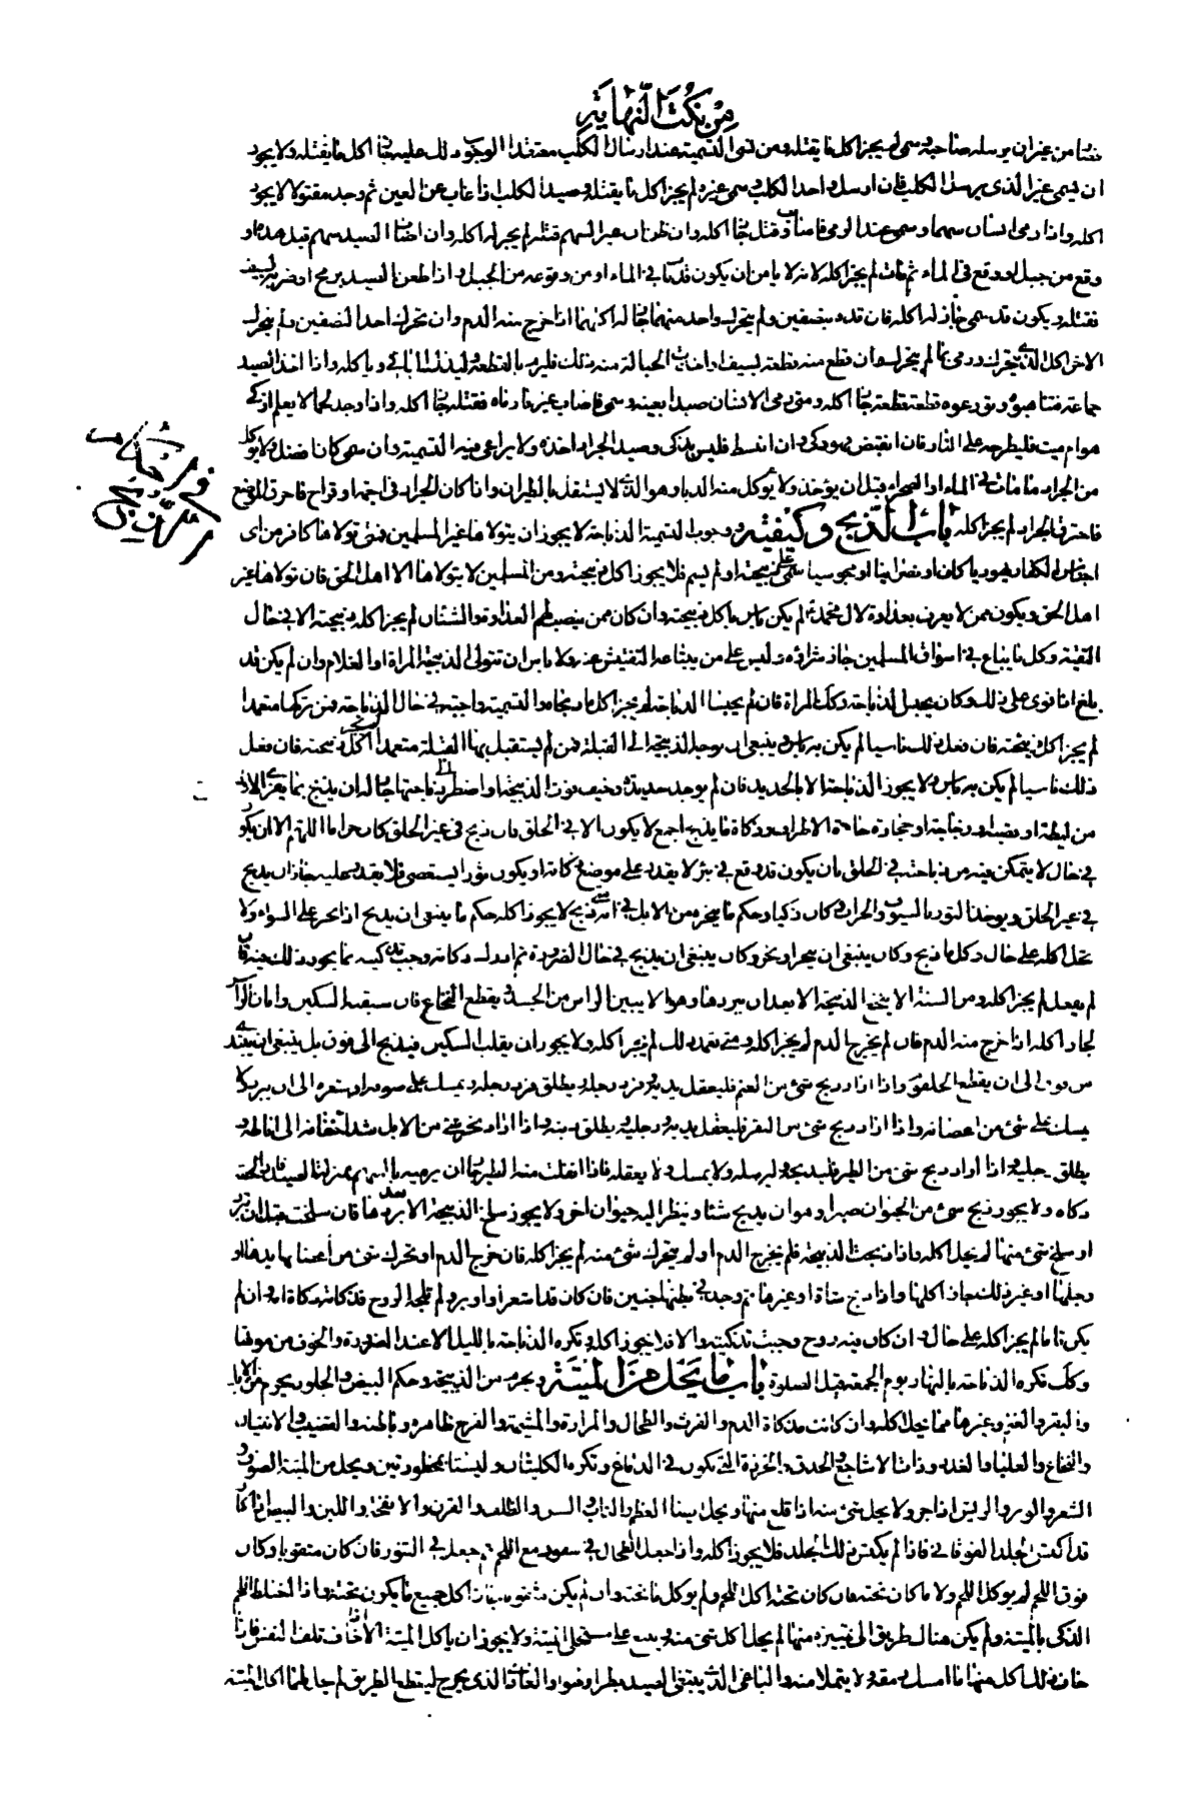 من نكت النهاية
من غير ان يرسله صاحبه وسمى لم يجز اكل ما يقتله ومن نسى التسمية عند ارسال الكلب معتقدا لوجوب ذلك عليه جاز اكل ما يقتله ولا يجوز
ان يسمى غير الذى يرسل الكلب فان ارسل واحد الكلب وسمى غيره لم يجز اكل ما يقتله وصيد الكلب اذا غاب عن العين ثم وجد مقتولا لا يجوز
اكله واذا رمى انسان سهما وسمى عند الرمى فاصاب وقتل جاز اكله وان غير السهم قتله لم يجز له اكله وان اصاب الصيد سهم
وقع من جبل او وقع فى الماء ثم مات لم يجز اكله لانه لا يامن ان يكون قد مات فى الماء او من وقوعه من الجبل واذا طعن الصيد برمح او ضربه بسيف
فقتله ويكون قد سمى جاز له اكله فان قده بنصفين ولم يتحرك واحد منهما جاز له اكلهما اذا خرج منه الدم وان تحرك احد النصفين ولم يتحرك
الاخر اكل الذى يتحرك ورمى بما لم يتحرك وان قطع منه قطعة بسيف او اخذت الحبالة منه ذلك فليرم بالقطعة وليذك الباقى وياكله واذا اخذ الصيد
جماعة فتناهبوه وتوزعوه قطعة قطعة جاز اكله ومتى رمى الانسان صيدا بعينه وسمى فاصاب غير ما رماه فقتله جاز اكله واذا وجد لحما لا يعلم اذكى
هو ام ميت فليطرحه على النار فان انقبض فهو ذكى وان انبسط فليس بذكى وصيد الجراد اخذه ولا يراعى فيه التسمية وان سمى كان افضل ولا يؤكل
من الجراد ما مات فى الماء او الصحراء قبل ان يؤخذ ولا يؤكل منه الدبا وهو الذى لا يستقل بالطيران واذا كان الجراد فى اجمة او قراح فاحرق الموضع
فاحترق الجراد لم يجز اكله باب الذبح وكيفيته ووجوب التسمية الذباحة لا يجوز ان يتولاها غير المسلمين فمتى تولاها كافر من اى
اجناس الكفار يهوديا كان او نصرانيا او مجوسيا سمى على ذبيحته او لم يسم فلا يجوز اكل ذبيحته ومن المسلمين لا يتولاها الا اهل الحق فان تولاها غير
اهل الحق ويكون ممن لا يعرف بعداوة لال محمد لم يكن باس باكل ذبيحته وان كان ممن ينصب لهم العداوة والشنآن لم يجز اكل ذبيحته الا فى حال
التقية وكل ما يباع فى اسواق المسلمين جاز شراؤه وليس على من يبتاعه التفتيش عنه ولا باس ان تتولى الذبيحة المراة او الغلام وان لم يكن قد
بلغ اذا قوى على ذلك وكان يحسن الذباحة وكذلك المراة فان لم يحسنا الذباحة لم يجز اكل ما ذبحاه والتسمية واجبة فى حال الذباحة فمن تركها متعمدا
لم يجز اكل ذبيحته فان فعل ذلك ناسيا لم يكن به باس وينبغى ان يوجه الذبيحة الى القبلة فمن لم يستقبل بها القبلة متعمدا لم يجز اكل ذبيحته فان فعل
ذلك ناسيا لم يكن به باس ولا يجوز الذباحة الا بالحديد فان لم يوجد حديد وخيف فوت الذبيحة او اضطر الى ذباحتها جاز له ان يذبح بما يفرى الاوداج
من ليطة او قصبة او زجاجة او حجارة حادة الاطراف وذكاة ما يذبح اجمع لا يكون الا فى الحلق فان ذبح فى غير الحلق كان حراما اللهم الا ان يكون
فى حال لا يتمكن فيه من ذباحته فى الحلق بان يكون قد وقع فى بئر لا يقدر على موضع ذكاته او يكون ثورا يستعصى فلا يقدر عليه جاز ان يذبح
فى غير الحلق ويؤخذ الثور بالسيوف والحراب وكان ذكيا وحكم ما ينحر من الابل فى انه متى ذبح لا يجوز اكله حكم ما ينبغى ان يذبح اذا نحر على السواء ولا
يحل اكله على حال وكل ما ذبح وكان ينبغى ان ينحر او نحر وكان ينبغى ان يذبح فى حال الضرورة ثم ادرك وذكاته وجب تذكيته بما يجوز ذلك فيه فان
لم يفعل لم يجز اكله ومن السنة الا ينخع الذبيحة الا بعد ان يبردها وهو الا يبين الراس من الجسد ويقطع النخاع فان سبقته السكين وابان الرأس
جاز اكله اذا خرج منه الدم فان لم يخرج الدم لم يجز اكله ومتى تعمد ذلك لم يجز اكله ولا يجوز ان يقلب السكين فيذبح الى فوق بل ينبغى ان يبتدئ
من فوق الى ان يقطع الحلقوم واذا اراد ذبح شئ من الغنم فليعقل يديه وفرد رجليه ويطلق فرد رجليه ويمسك على صوفه او شعره الى ان يبرد ولا
يمسك على شئ من اعضائه واذا اراد ذبح شئ من البقر فليعقل يديه ورجليه ويطلق ذنبه واذا اراد نحر شئ من الابل شد اخفافه الى اباطه و
يطلق رجليه واذا اراد ذبح شئ من الطير فليذبحه وليرسله ولا يمسكه ولا يعقله فاذا انفلت منه الطير جاز ان يرميه بالسهم بمنزلة الصيد فاذا لحقه
ذكاه ولا يجوز ذبح شئ من الحيوان صبرا وهو ان يذبح شئا وينظر اليه حيوان اخر ولا يجوز سلخ الذبيحة الا بعد بردها فان سلخت قبل ان تبرد
او سلخ شئ منها لم يحل اكله واذا ذبحت الذبيحة فلم يخرج الدم او لم يتحرك شئ منه لم يجز اكله فان خرج الدم او تحرك شئ من اعضائها يدها او
رجلها او غير ذلك جاز اكلها واذا ذبح شاة او غيرها ثم وجد فى بطنها جنين فان كان قد اشعر او اوبر ولم تلجه الروح فذكاته ذكاة امه وان لم
يكن تاما لم يجز اكله على حال وان كان فيه روح وجبت تذكيته والا فلا يجوز اكله وتكره الذباحة بالليل الا عند الضرورة والخوف من موتها
وكذلك تكره الذباحة بالنهار يوم الجمعة قبل الصلوة باب ما يحل من الميتة ويحرم من الذبيحة وحكم البيض والجلود يحرم من الابل
والبقر والغنم وغيرها مما يحل اكله وان كانت مذكاة الدم والفرث والطحال والمرارة والمشيمة والفرج ظاهره وباطنه والقضيب والانثيان
والنخاع والعلباء والغدد وذات الاشاجع والحدق والخرزة التى تكون فى الدماغ وتكره الكليتان وليستا بمحظورتين ويحل من الميتة الصوف و
الشعر والوبر والريش اذا جز ولا يحل شئ منه اذا قلع منها ويحل ايضا العظم والناب والسن والظلف والقرن والانفحة واللبن والبيض اذا كان
قد اكتسى الجلد الفوقانى فاذا لم يكتس ذلك الجلد فلا يجوز اكله واذا جعل الطحال فى سفود مع اللحم ثم جعل فى التنور فان كان مثقوبا وكان
فوق اللحم لم يؤكل اللحم ولا ما كان تحته فان كان تحته اكل اللحم ولم يؤكل ما تحته وان لم يكن مثقوبا جاز اكل جميع ما يكون تحته واذا اختلط اللحم
الذكى بالميتة ولم يكن هناك طريق الى تمييزه منها لم يحل اكل شئ منه وبيع على مستحلى الميتة ولا يجوز ان ياكل الميتة الا اذا خاف تلف النفس فاذا
خاف ذلك اكل منها ما امسك رمقه ولا يتملا منه والباغى الذى يبتغى الصيد بطرا ولهوا والعادى الذى يخرج ليقطع الطريق لم يحل لهما اكل الميتة
فى احكام
الذبح